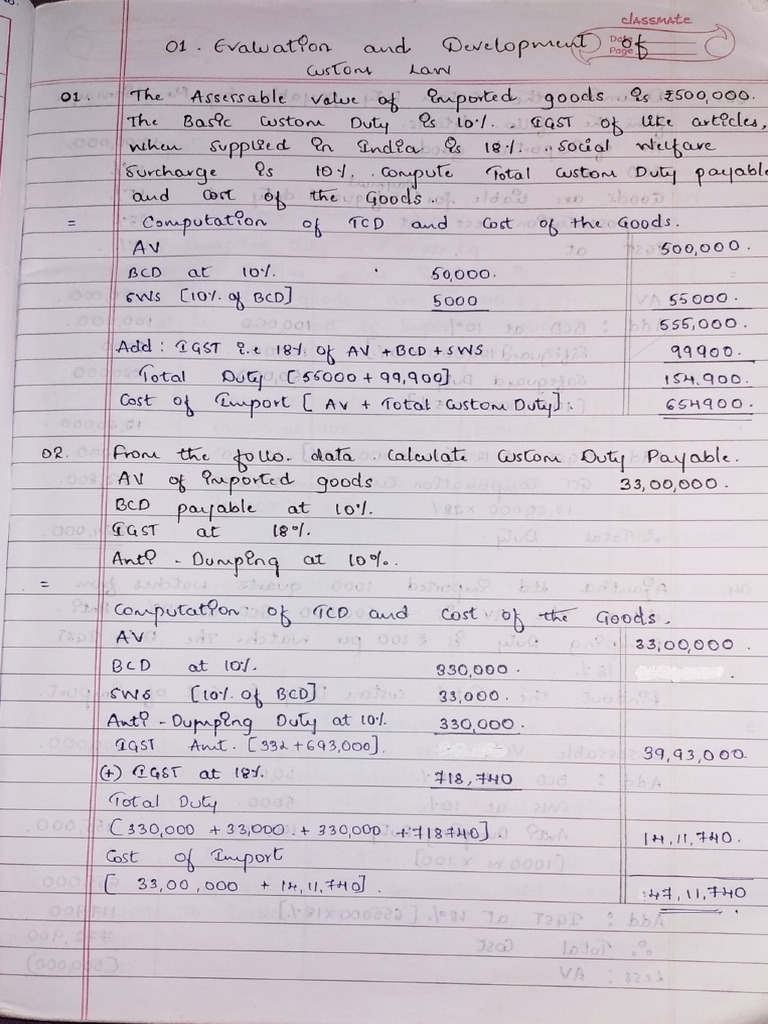 classmate
Date
Page
01. Evaluation and Development of
Custom Law
01. The Assessable value of imported goods is ₹500,000.
The Basic Custom Duty is 10%. IGST of like articles,
when supplied in India is 18%. Social welfare
surcharge is 10%. compute Total Custom Duty payable
and cost of the Goods.
= Computation of TCD and Cost of the Goods.
AV 500,000.
BCD at 10%. 50,000.
SWS [10% of BCD] 5000 55000.
555,000.
Add: IGST i.e 18% of AV + BCD + SWS 99900.
Total Duty [55000 + 99,900] 154,900.
Cost of Import [AV + Total Custom Duty]. 654900.
02. From the follo. data. calculate Custom Duty Payable.
AV of imported goods 33,00,000.
BCD payable at 10%.
IGST at 18%.
Anti - Dumping at 10%.
=
Computation of TCD and Cost of the Goods.
AV 33,00,000
BCD at 10%. 330,000.
SWS [10% of BCD] 33,000.
Anti - Dumping Duty at 10%. 330,000.
IGST Amt. [33L + 693,000]. 39,93,000.
(+) IGST at 18%. 718,740
Total Duty
[330,000 + 33,000 + 330,000 + 718740]. 14,11,740.
Cost of Import
[33,00,000 + 14,11,740]. 47,11,740